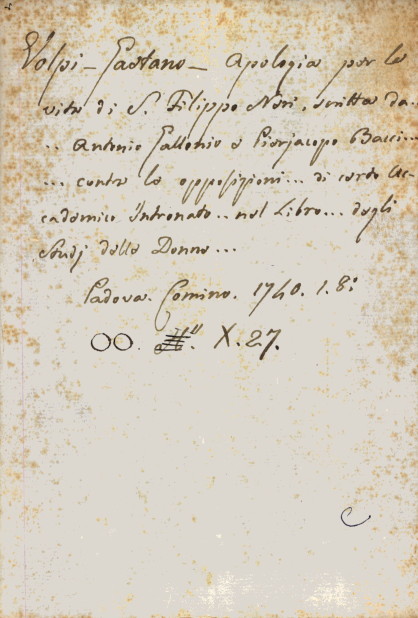 Volpi - Gaetano - Apologia per la
vita di S. Filippo Neri, scritta da..
.. Antonio Gallonio e Pierjacopo Bacci...
... contro le opposizioni... di certo Ac-
cademico Intronato.. nel Libro... degli
Studj delle Donne...
Padova. Comino. 1740. 1. 8:
OO. X. 27.